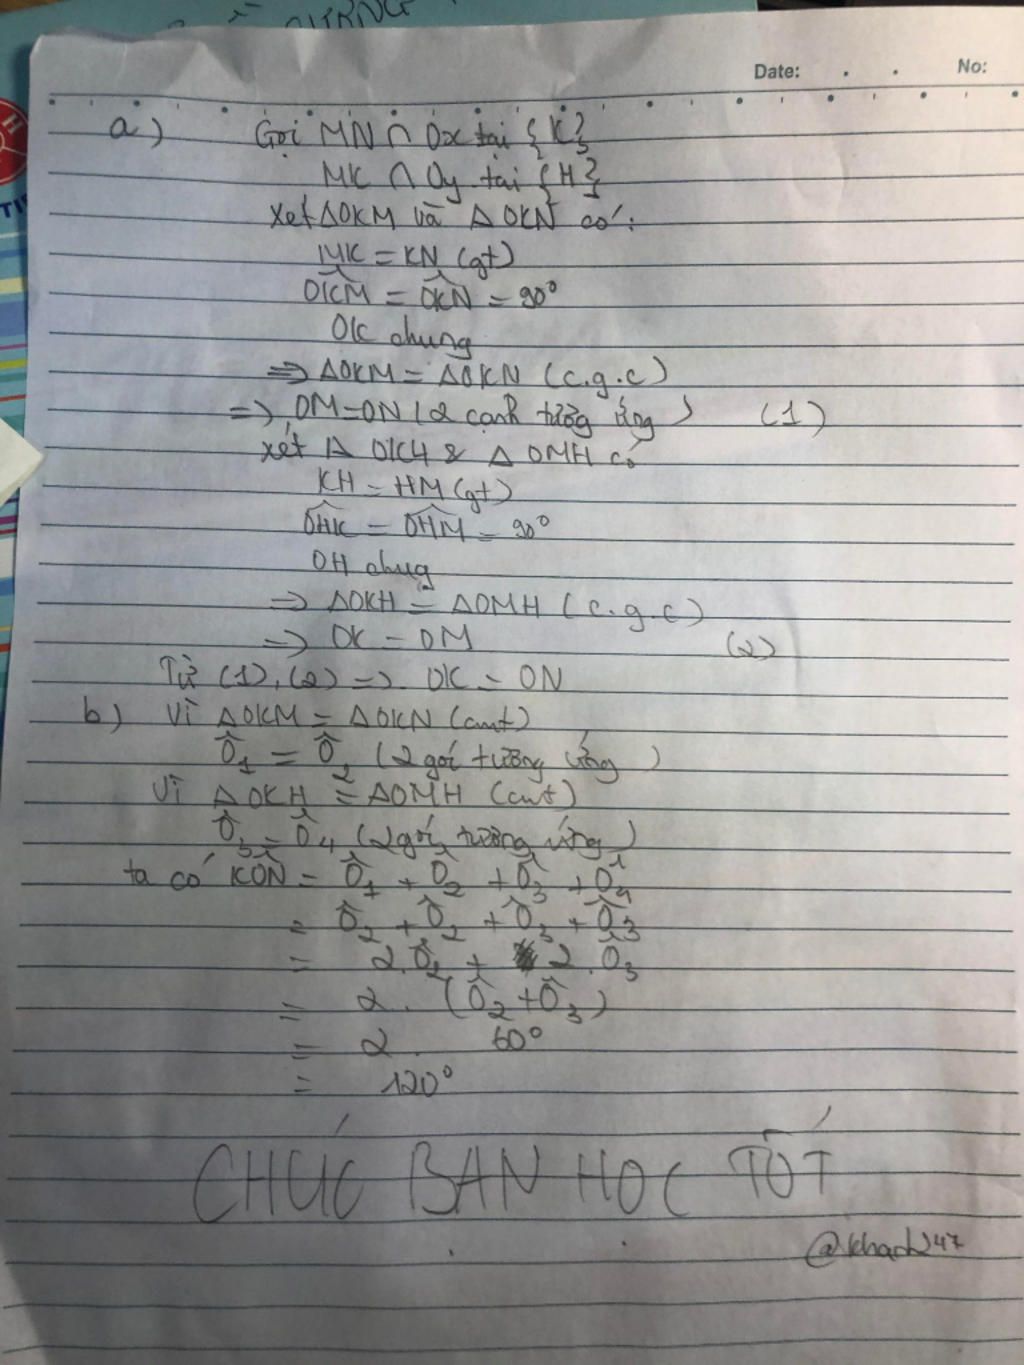 Date:
No:
a) Gọi MN ∩ Ox tại {K}
MK ∩ Oy tại {H}
Xét ΔOKM và ΔOKN có:
MK = KN (gt)
OKM = OKN = 90°
OK chung
=> ΔOKM = ΔOKN (c.g.c)
=> OM = ON (2 cạnh tương ứng) (1)
xét Δ OKH & Δ OMH có
KH = HM (gt)
OHK = OHM = 90°
OH chug
=> ΔOKH = ΔOMH (c.g.c)
=> OK = OM (2)
Từ (1), (2) => OK = ON
b) Vì ΔOKM = ΔOKN (cmt)
Ô1 = Ô2 (2 gói tương ứng)
Vì ΔOKH = ΔOMH (cmt)
Ô3 = Ô4 (2 gói tương ứng)
ta có KÔN = Ô1 + Ô2 + Ô3 + Ô4
= Ô2 + Ô2 + Ô3 + Ô3
= 2.Ô2 + 2.Ô3
= 2. (Ô2 + Ô3)
= 2. 60°
= 120°
CHÚC BẠN HỌC TỐT
@khanh247